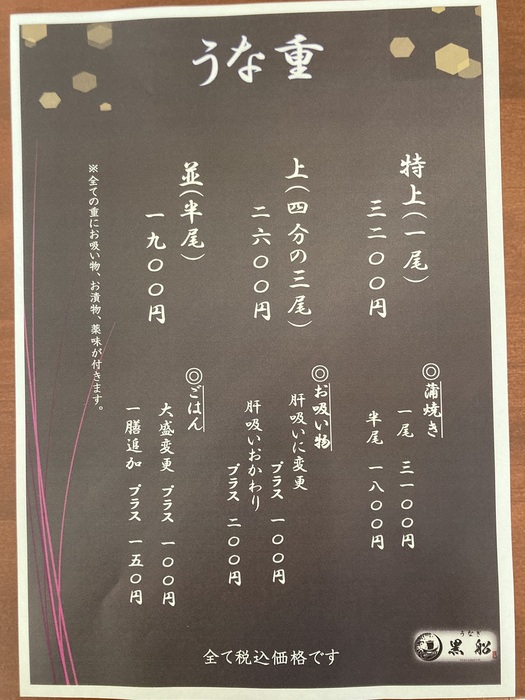 うな重
特上（一尾）
三二〇〇円
上（四分の三尾）
二六〇〇円
並（半尾）
一九〇〇円
※全ての重にお吸い物、お漬物、薬味が付きます。
◎蒲焼き
一尾　三一〇〇円
半尾　一八〇〇円
◎お吸い物
肝吸いに変更
プラス　一〇〇円
肝吸いおかわり
プラス　二〇〇円
◎ごはん
大盛変更　プラス　一〇〇円
一膳追加　プラス　一五〇円
全て税込価格です
うなぎ
黒船